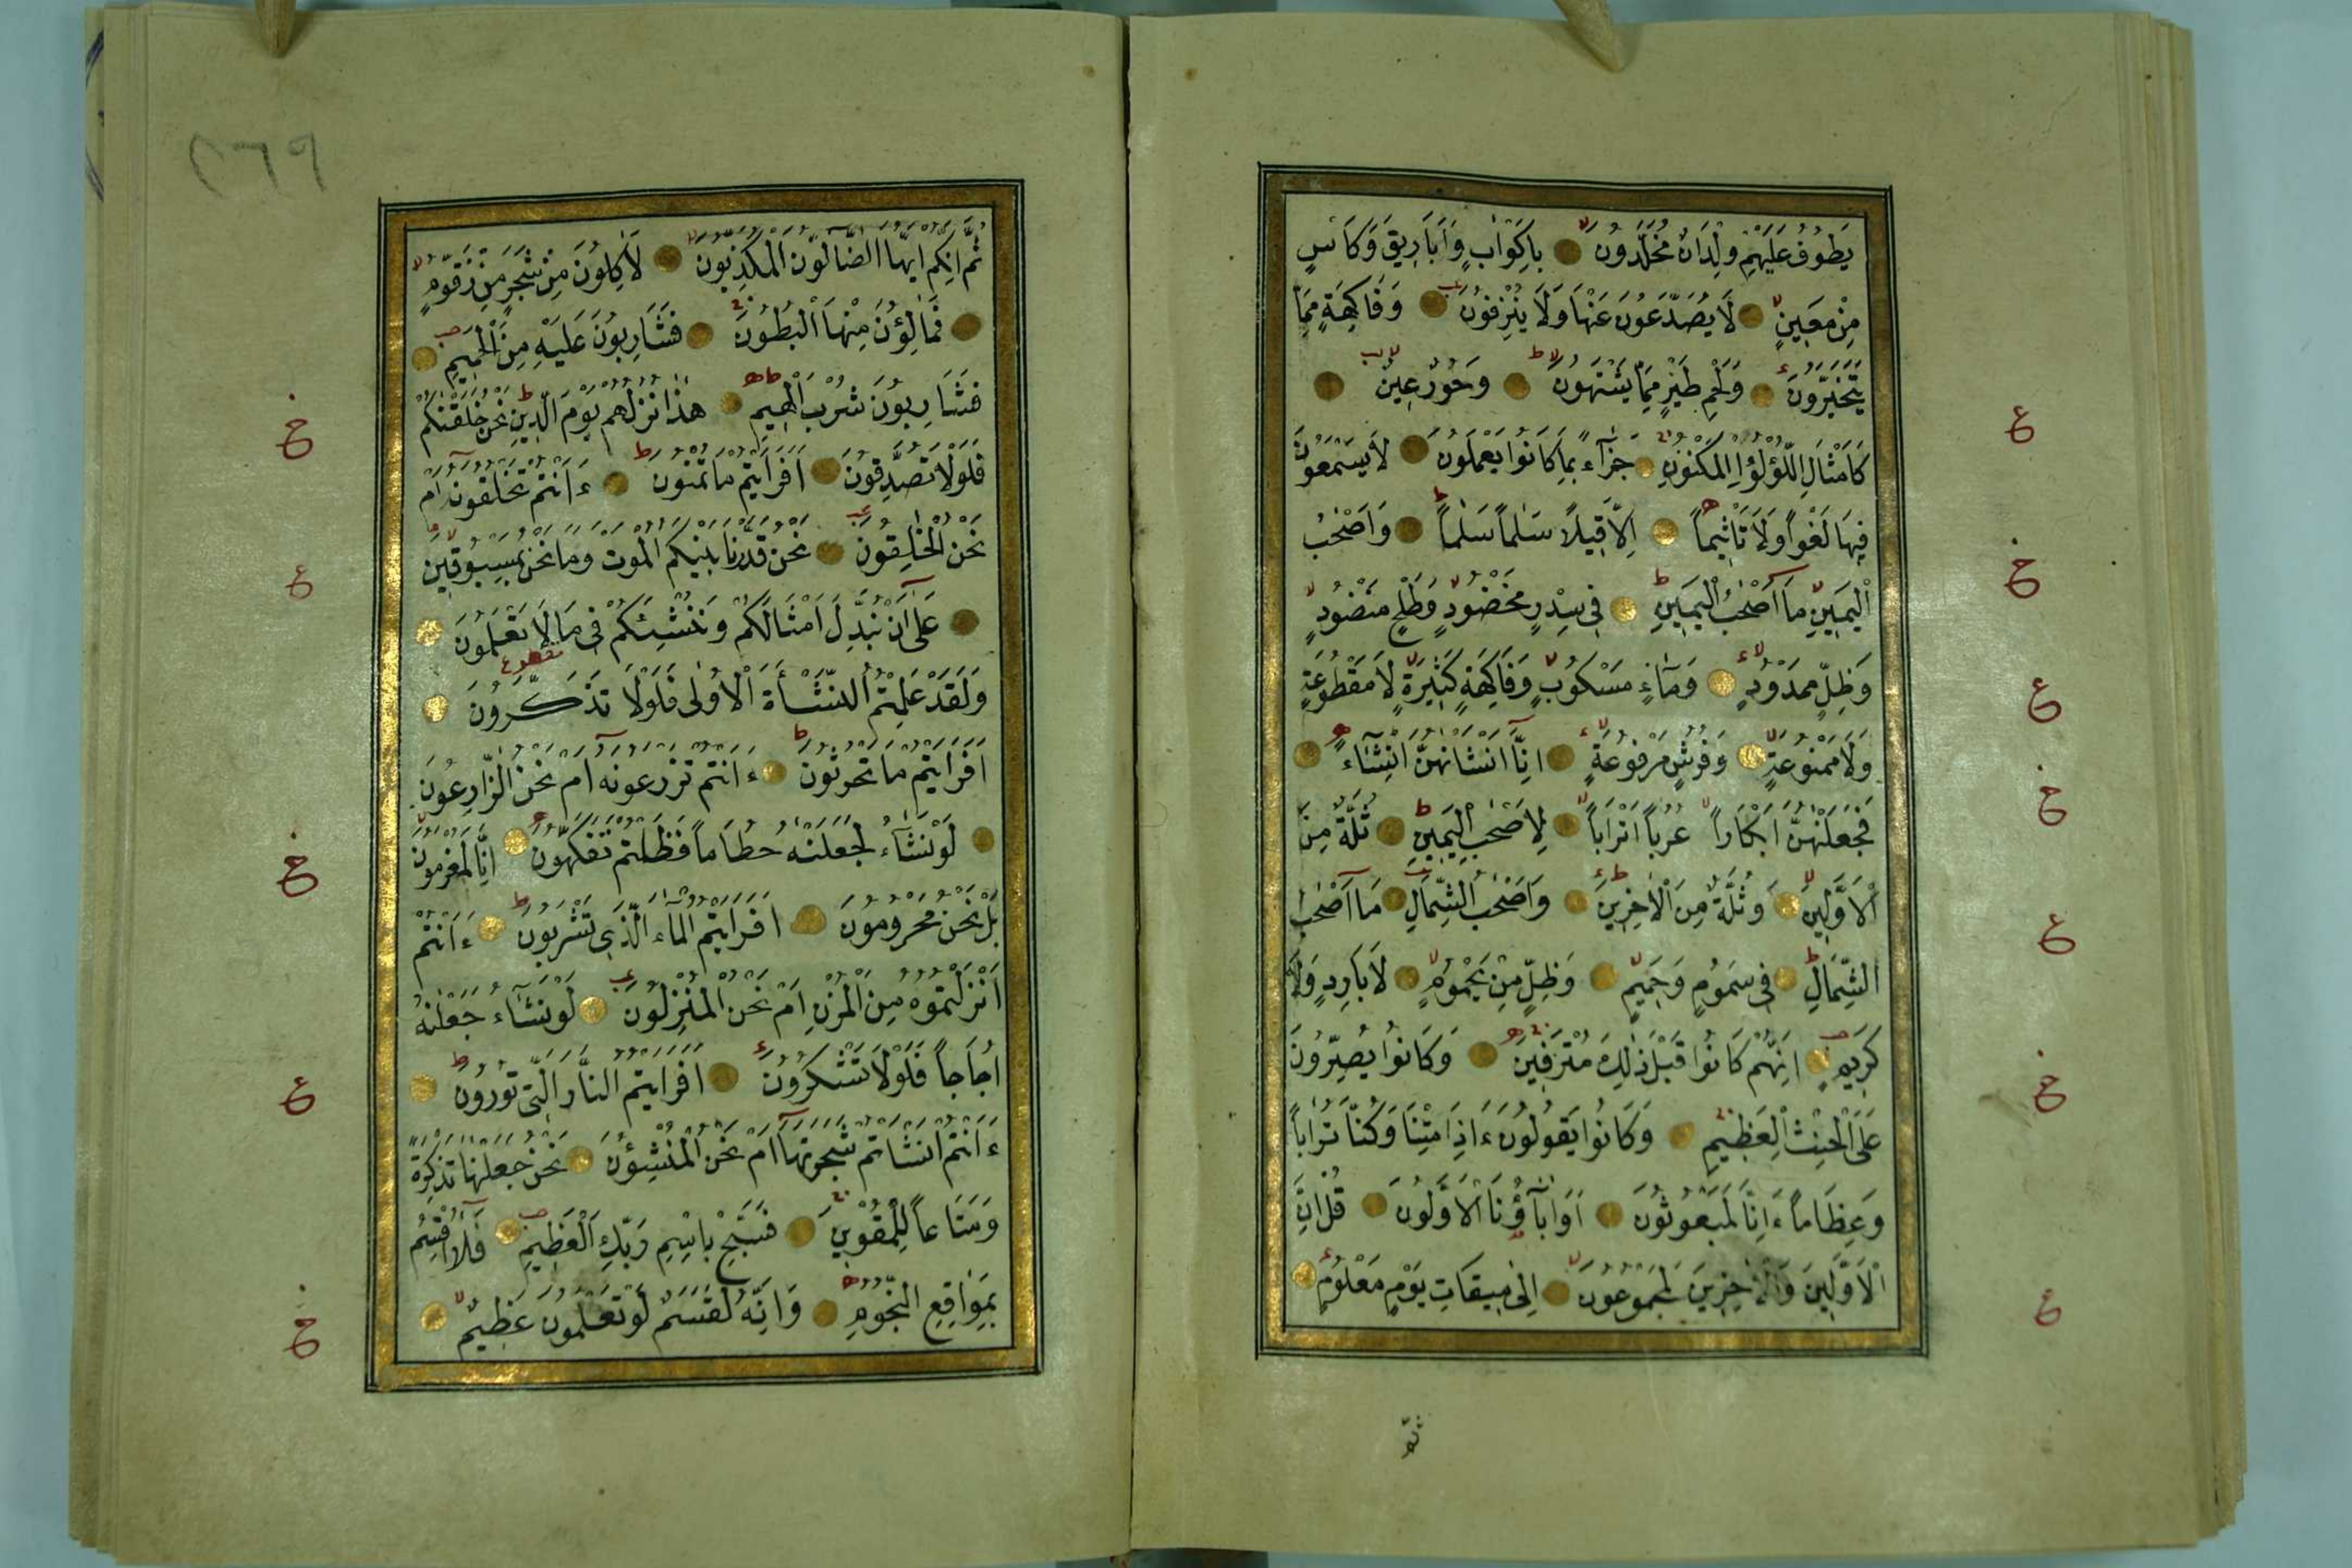 يَطُوفُ عَلَيْهِمْ وِلْدَانٌ مُخَلَّدُونَ بِاَكْوَابٍ وَاَبَارِيقَ وَكَاْسٍ
مِنْ مَعِينٍ لَا يُصَدَّعُونَ عَنْهَا وَلَا يُنْزِفُونَ وَفَاكِهَةٍ مِمَّا
يَتَخَيَّرُونَ وَلَحْمِ طَيْرٍ مِمَّا يَشْتَهُونَ وَحُورٌ عِينٌ
كَاَمْثَالِ اللُّؤْلُؤِ الْمَكْنُونِ جَزَآءً بِمَا كَانُوا يَعْمَلُونَ لَا يَسْمَعُونَ
فِيهَا لَغْواً وَلَا تَأْثِيماً اِلَّا قِيلاً سَلٰماً سَلٰماً وَاَصْحٰبُ
الْيَمِينِ مَا اَصْحٰبُ الْيَمِينِ فِى سِدْرٍ مَخْضُودٍ وَطَلْحٍ مَنْضُودٍ
وَظِلٍّ مَمْدُودٍ وَمَآءٍ مَسْكُوبٍ وَفَاكِهَةٍ كَثِيرَةٍ لَا مَقْطُوعَةٍ
وَلَا مَمْنُوعَةٍ وَفُرُشٍ مَرْفُوعَةٍ اِنَّا اَنْشَاْنٰهُنَّ اِنْشَآءً
فَجَعَلْنٰهُنَّ اَبْكَاراً عُرُباً اَتْرَاباً لِاَصْحٰبِ الْيَمِينِ ثُلَّةٌ مِنَ
الْاَوَّلِينَ وَثُلَّةٌ مِنَ الْاٰخِرِينَ وَاَصْحٰبُ الشِّمَالِ مَا اَصْحٰبُ
الشِّمَالِ فِى سَمُومٍ وَحَمِيمٍ وَظِلٍّ مِنْ يَحْمُومٍ لَا بَارِدٍ وَلَا
كَرِيمٍ اِنَّهُمْ كَانُوا قَبْلَ ذٰلِكَ مُتْرَفِينَ وَكَانُوا يُصِرُّونَ
عَلَى الْحِنْثِ الْعَظِيمِ وَكَانُوا يَقُولُونَ ءَاِذَا مِتْنَا وَكُنَّا تُرَاباً
وَعِظَاماً ءَاِنَّا لَمَبْعُوثُونَ اَوَاٰبَآؤُنَا الْاَوَّلُونَ قُلْ اِنَّ
الْاَوَّلِينَ وَالْاٰخِرِينَ لَمَجْمُوعُونَ اِلٰى مِيقَاتِ يَوْمٍ مَعْلُومٍ
ثم
٢٦٩
ثُمَّ اِنَّكُمْ اَيُّهَا الضَّالُّونَ الْمُكَذِّبُونَ لَاٰكِلُونَ مِنْ شَجَرٍ مِنْ زَقُّومٍ
فَمَالِؤُنَ مِنْهَا الْبُطُونَ فَشَارِبُونَ عَلَيْهِ مِنَ الْحَمِيمِ
فَشَارِبُونَ شُرْبَ الْهِيمِ هٰذَا نُزُلُهُمْ يَوْمَ الدِّينِ نَحْنُ خَلَقْنٰكُمْ
فَلَوْلَا تُصَدِّقُونَ اَفَرَاَيْتُمْ مَا تُمْنُونَ ءَاَنْتُمْ تَخْلُقُونَهُ اَمْ
نَحْنُ الْخٰلِقُونَ نَحْنُ قَدَّرْنَا بَيْنَكُمُ الْمَوْتَ وَمَا نَحْنُ بِمَسْبُوقِينَ
عَلٰى اَنْ نُبَدِّلَ اَمْثَالَكُمْ وَنُنْشِئَكُمْ فِى مَا لَا تَعْلَمُونَ
وَلَقَدْ عَلِمْتُمُ النَّشْأَةَ الْاُولٰى فَلَوْلَا تَذَكَّرُونَ
اَفَرَاَيْتُمْ مَا تَحْرُثُونَ ءَاَنْتُمْ تَزْرَعُونَهُ اَمْ نَحْنُ الزَّارِعُونَ
لَوْ نَشَآءُ لَجَعَلْنٰهُ حُطَاماً فَظَلْتُمْ تَفَكَّهُونَ اِنَّا لَمُغْرَمُونَ
بَلْ نَحْنُ مَحْرُومُونَ اَفَرَاَيْتُمُ الْمَآءَ الَّذِى تَشْرَبُونَ ءَاَنْتُمْ
اَنْزَلْتُمُوهُ مِنَ الْمُزْنِ اَمْ نَحْنُ الْمُنْزِلُونَ لَوْ نَشَآءُ جَعَلْنٰهُ
اُجَاجاً فَلَوْلَا تَشْكُرُونَ اَفَرَاَيْتُمُ النَّارَ الَّتِى تُورُونَ
ءَاَنْتُمْ اَنْشَاْتُمْ شَجَرَتَهَا اَمْ نَحْنُ الْمُنْشِؤُنَ نَحْنُ جَعَلْنٰهَا تَذْكِرَةً
وَمَتَاعاً لِلْمُقْوِينَ فَسَبِّحْ بِاسْمِ رَبِّكَ الْعَظِيمِ فَلَا اُقْسِمُ
بِمَوَاقِعِ النُّجُومِ وَاِنَّهُ لَقَسَمٌ لَوْ تَعْلَمُونَ عَظِيمٌ